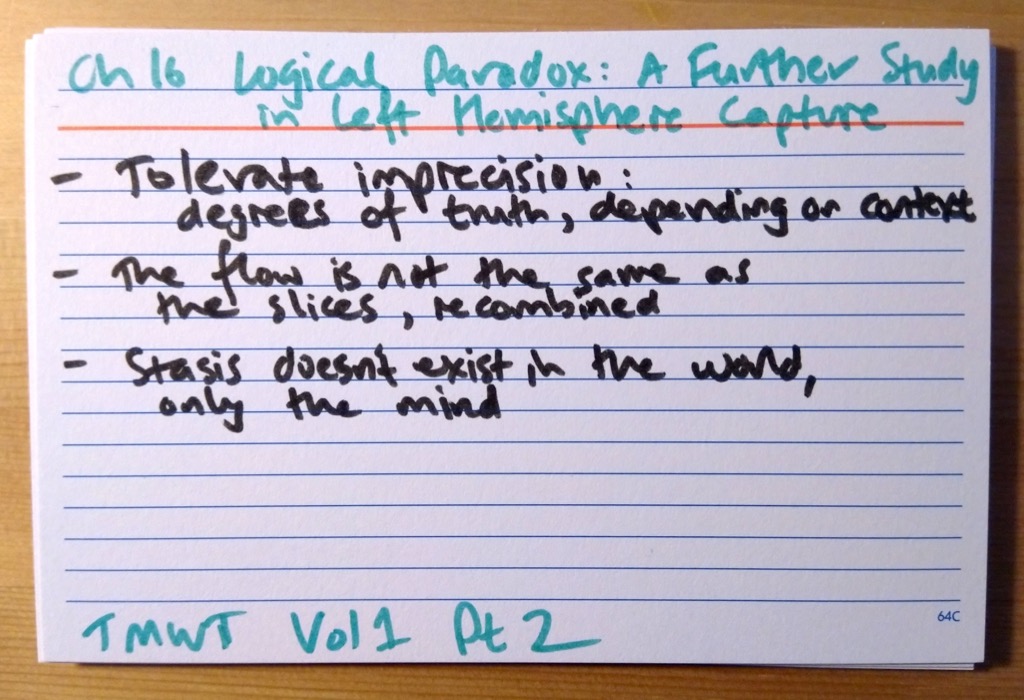 Ch 16 Logical Paradox: A Further Study
in Left Hemisphere Capture
- Tolerate imprecision:
degrees of truth, depending on context
- The flow is not the same as
the slices, recombined
- Stasis doesn't exist in the world,
only the mind
TMWT Vol 1 Pt 2
64C